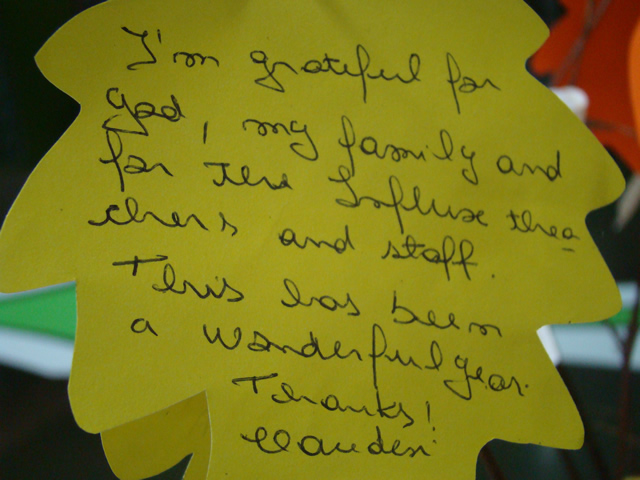 I'm grateful for
god, my family and
for the
chers and staff.
This has been
a wonderful year.
Thanks!